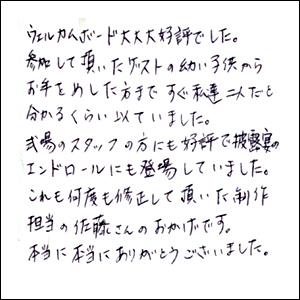 ウェルカムボード大大大好評でした。
参加して頂いたゲストの幼い子供から
お年をめした方まですぐ私達二人だと
分かるくらい似ていました。
式場のスタッフの方にも好評で披露宴の
エンドロールにも登場していました。
これも何度も修正して頂いた制作
担当の佐藤さんのおかげです。
本当に本当にありがとうございました。